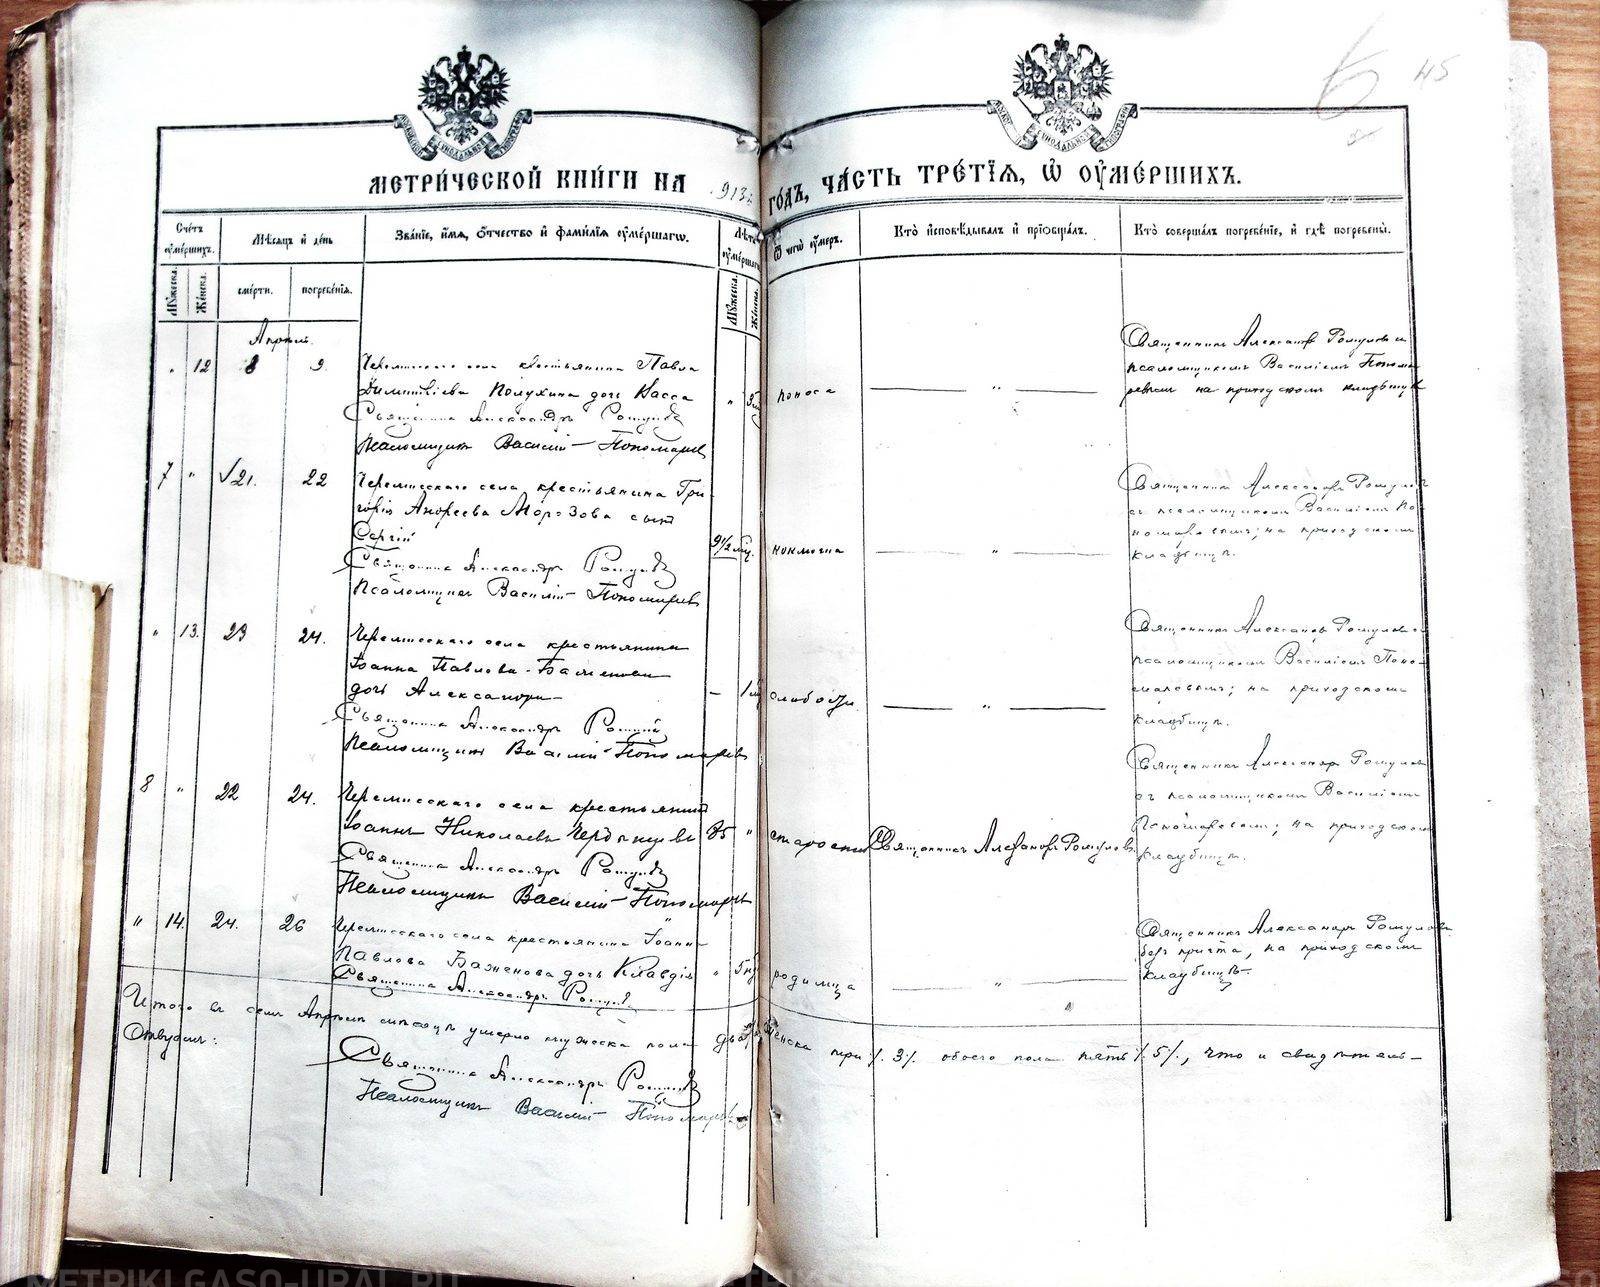 45
МЕТРИЧЕСКОЙ КНИГИ НА 913 ГОДЪ, ЧАСТЬ ТРЕТІЯ, Ѿ ОУМЕРШИХЪ.
Счетъ оумершихъ.
Мѣсяцъ и день
Званіе, имя, отчество и фамилія оумершагѡ.
Лѣта оумершагѡ
Ѿ чегѡ оумеръ.
Кто исповѣдывалъ и пріобщалъ.
Кто совершалъ погребеніе, и гдѣ погребены.
Мужеска.
Женска.
смерти.
погребенія.
Мужеска.
Женска.
Апрѣль.
" 12 8 9.
Черемисскаго села крестьянина Павла
Димитріева Полухина дочь Васса
Священникъ Александръ
Псаломщикъ Василій Пономаревъ
" 3 м
поноса
— " —
Священникъ Александръ
псаломщикомъ Василіемъ Понома
ревымъ на приходскомъ кладбищѣ
7 " 21. 22
Черемисскаго села крестьянина Гри-
горія Андреева Морозова сынъ
Сергій
Священникъ Александръ
Псаломщикъ Василій Пономаревъ
9½ мц.
— " —
Священникъ Александръ
съ псаломщикомъ Василіемъ По
номаревымъ; на приходскомъ
кладбищѣ.
" 13. 23 24.
Черемисскаго села крестьянина
Іоанна Павлова Баженова
дочь Александра
Священникъ Александръ
Псаломщикъ Василій Пономаревъ
— 1 м
слабости.
— " —
Священникъ Александръ
псаломщикомъ Василіемъ Поно-
маревымъ; на приходскомъ
кладбищѣ.
8 " 22 24.
Черемисскаго села крестьянинъ
Іоаннъ Николаевъ
Священникъ Александръ
Псаломщикъ Василій Пономаревъ
85 "
старости
Священникъ Александръ
Священникъ Александръ
съ псаломщикомъ Василіемъ
Пономаревымъ; на приходскомъ
кладбищѣ.
" 14. 24. 26
Черемисскаго села крестьянина Іоанна
Павлова Баженова дочь Клавдія
Священникъ Александръ
" 5
родимца
— " —
Священникъ Александръ
безъ причта, на приходскомъ
кладбищѣ
Итого въ семъ Апрѣлѣ мѣсяцѣ умерло мужеска пола два, женска три ⁒ 3 ⁒ обоего пола пять ⁒ 5 ⁒, что и свидѣтель-
ствуемъ:
Священникъ Александръ
Псаломщикъ Василій Пономаревъ